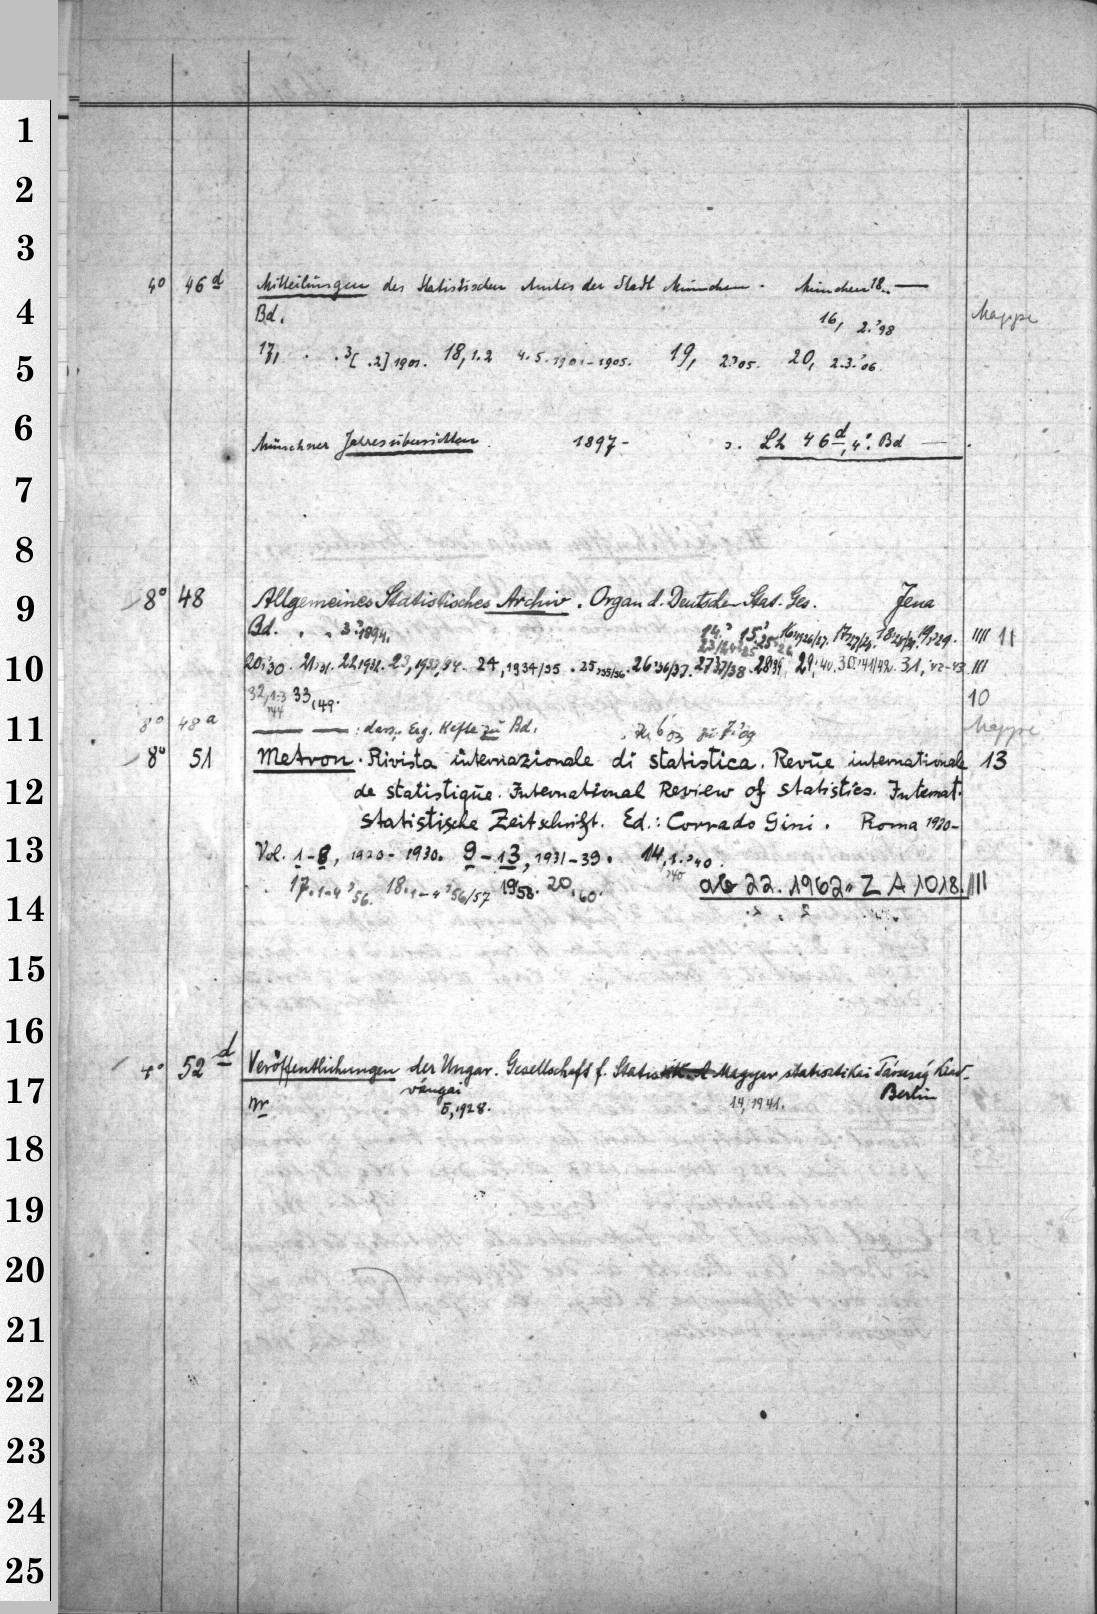 1
2
3
4° 46 d Mitteilungen des Statistischen Amtes der Stadt München. München 18..—
4 Bd. 16, 2.'98 Mappe
5 17, . . 3[ .2] 1901. 18, 1.2 4.5. 1901–1905. 19, 2.'05. 20, 2.3.'06.
6 Münchner Jahresübersichten. 1897– s. Lh 46 d, 4°. Bd — .
7
8
9 8° 48 Allgemeines Statistisches Archiv. Organ d. Deutschen Stat. Ges. Jena
Bd. . . 3.'1894. 14.' 15.' 16, 1926/27. 17, 27/28. 18, 28/29. 19, 1929. IIII 11
10 20,'30. 21,'31. 22, 1932. 23, 1933/34. 24, 1934/35. 25, 1935/36. 26,'36/37. 27,'37/38. 28,'39. 29,'40. 30,'41/42. 31,'42-43. III
32, 1-3 '44 33, '49. 10
11 8° 48 a — — : dass. Erg. Hefte zu Bd. zu 6,'03 zu 7,'09 Mappe
8° 51 Metron. Rivista internazionale di statistica. Revue internationale 13
12 de statistique. International Review of statistics. Internat.
statistische Zeitschrift. Ed.: Corrado Gini. Roma 1920–
13 Vol. 1–8, 1920–1930. 9–13, 1931–39. 14, 1.'40.
14 17, 1–4 '56. 18, 1–4 '56/57 19, 58. 20, 60. ab 22. 1962 = Z A 1018. III
15
16
4° 52 d Veröffentlichungen der Ungar. Gesellschaft f. Statistik. Magyar statisztikai Társaság Kiad-
17 ványai Berlin
Nr 5, 1928. 14, 1941.
18
19
20
21
22
23
24
25